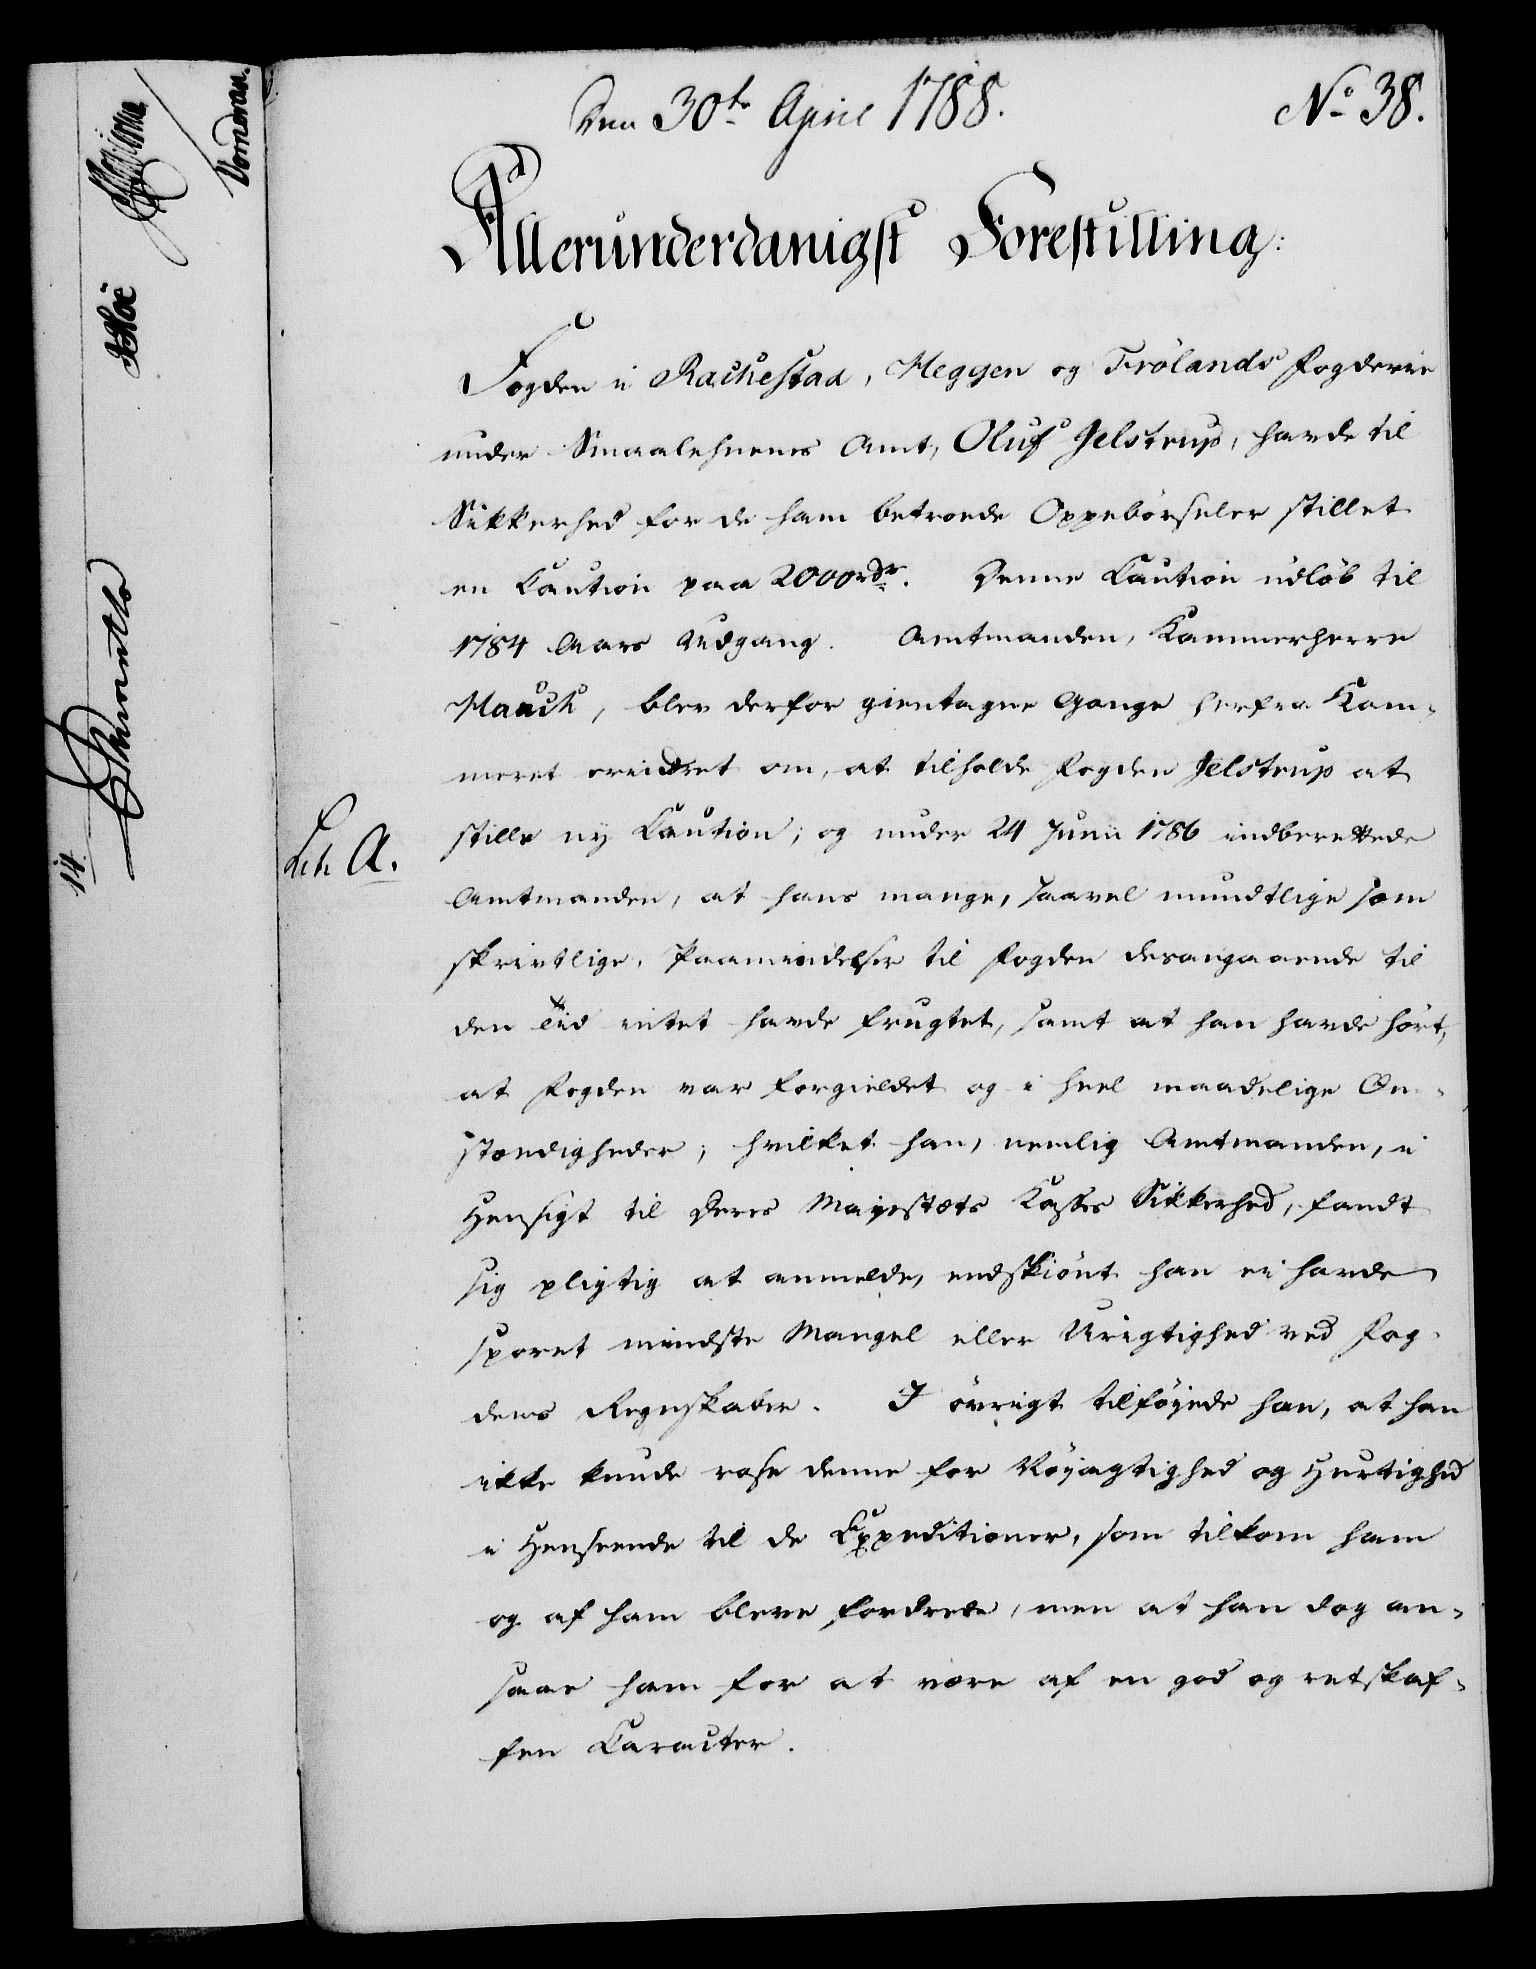 Den 30te April 1788.
No 38.
Allerunderdanigst Forestilling:
Fogden i Rachestad, Heggen og Frölands Fogderie
under Smaalehnenes Amt, Oluf Jelstrup, havde til
Sikkerhed for de ham betroede Oppebörseler stillet
en Caution paa 2000rdr. Denne Caution udlöb til
1784 Aars Udgang. Amtmanden, Kammerherre
Mauch, blev derfor gientagne Gange herfra Kam-
meret erindret om, at tilholde Fogden Jelstrup at
stille ny Caution; og under 24 Junii 1786 indberettede
Litr A.
Amtmanden, at hans mange, saavel mundtlige som
skrivtlige, Paamindelser til Fogden desangaaende til
den Tiid intet havde frugtet, samt at han havde hört,
at Fogden var forgieldet og i heel maadelige Om-
stændigheder; hvilket han, nemlig Amtmanden, i
Hensigt til Deres Majestæts Kasses Sikkerhed, fandt
sig pligtig at anmelde, endskiönt han ei havde
sporet mindste Mangel eller Urigtighed ved Fog-
dens Regnskaber. I övrigt tilföyede han, at han
ikke kunde rose denne for Nöyagtighed og Hurtighed
i Henseende til de Expeditioner, som tilkom ham
og af ham bleve fordrede, men at han dog an-
saae ham for at være af en god og retskaf-
fen Caracter.
14.
Vomeran.